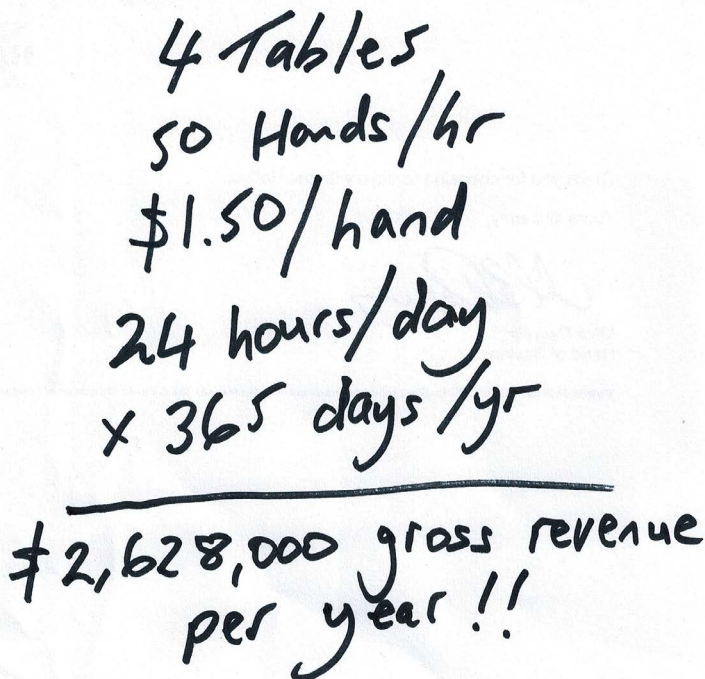 4 Tables
50 Hands/hr
$1.50/hand
24 hours/day
x 365 days/yr
$2,628,000 gross revenue
per year!!